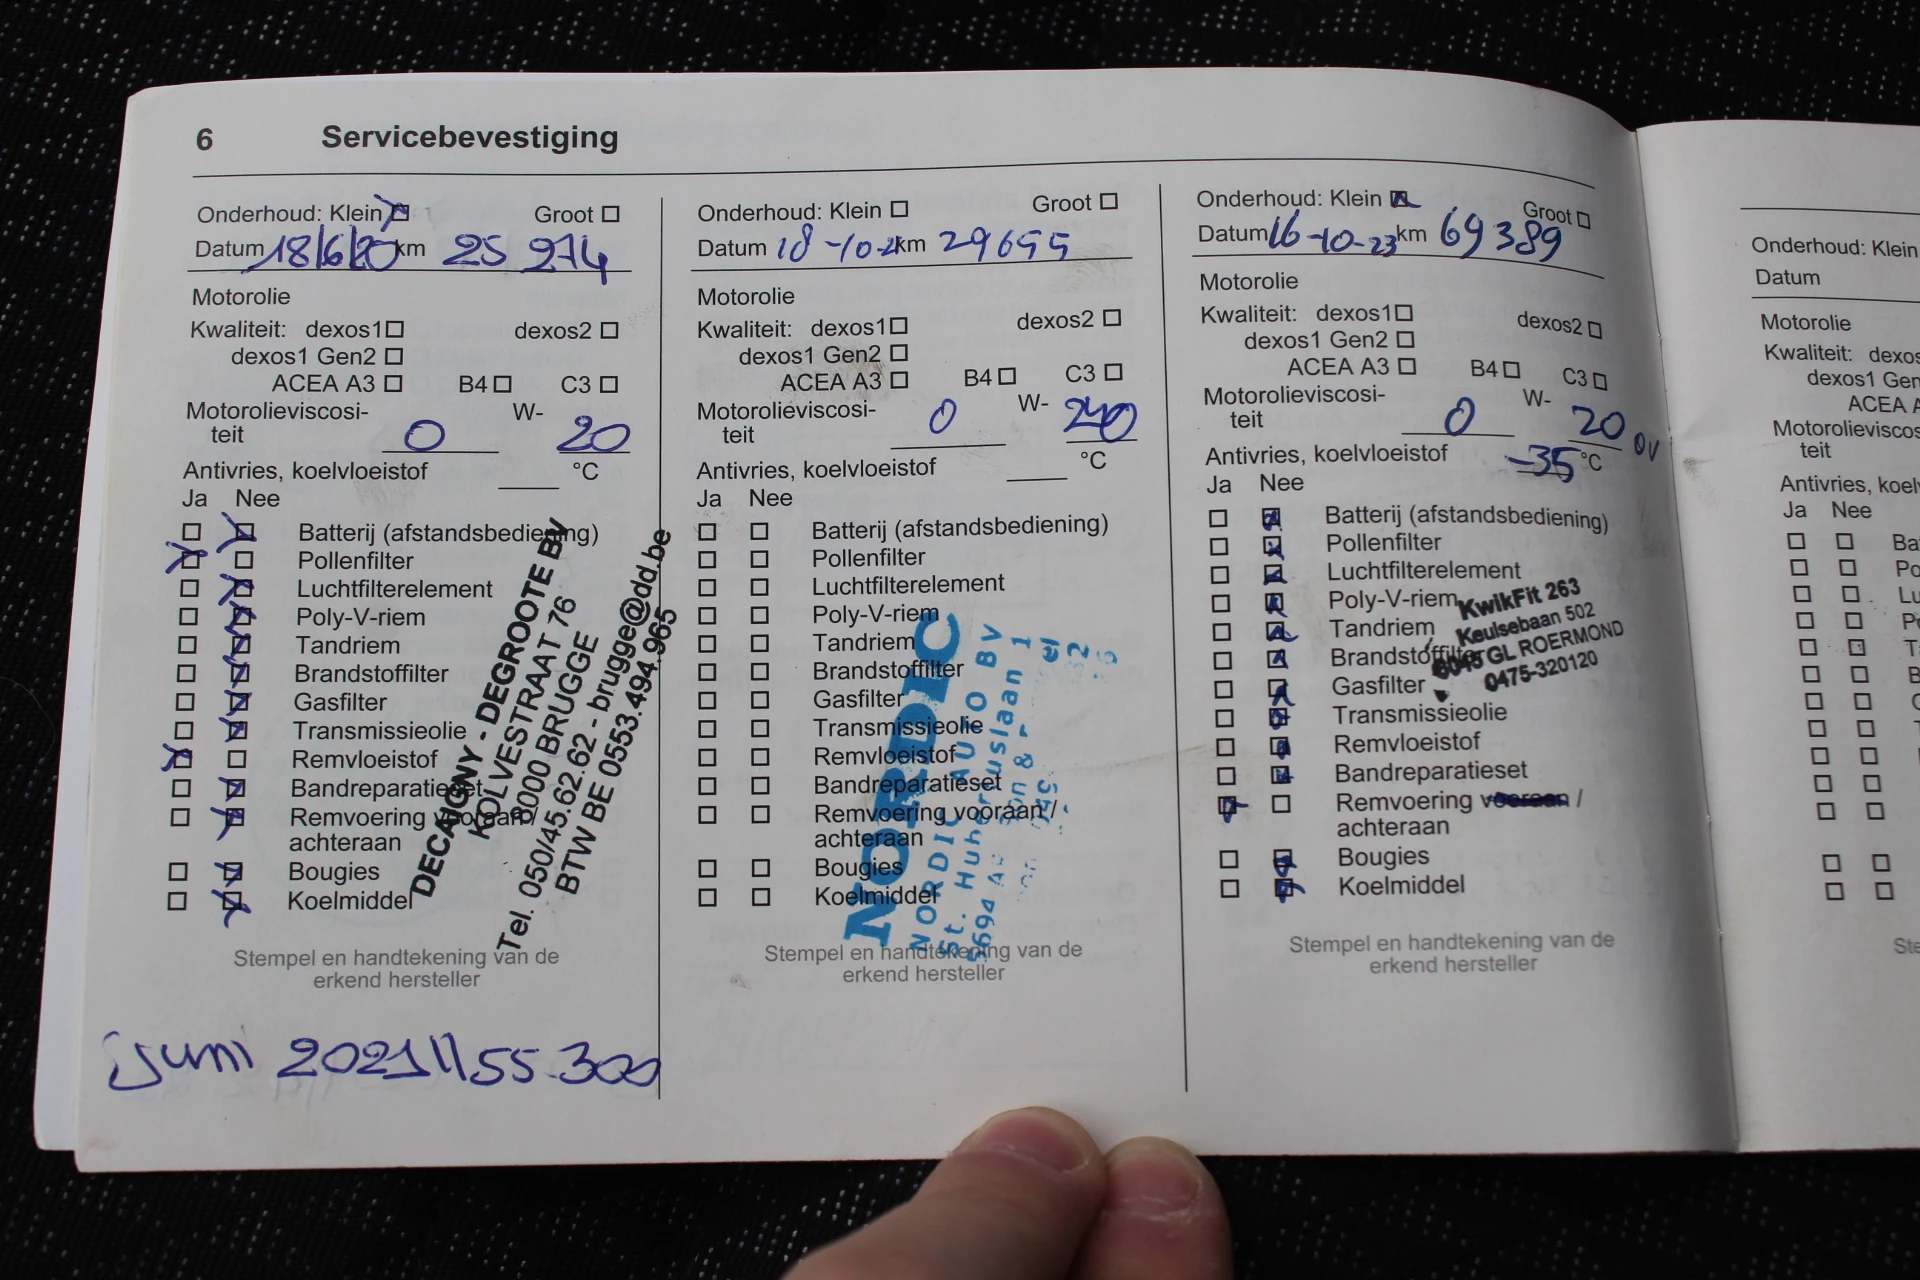 6 Servicebevestiging
Onderhoud: Klein Groot
Datum 18/6/20 km 25 274
Motorolie
Kwaliteit: dexos1 dexos2
dexos1 Gen2
ACEA A3 B4 C3
Motorolieviscosi- W-
teit 0 20
Antivries, koelvloeistof °C
Ja Nee
Batterij (afstandsbediening)
Pollenfilter
Luchtfilterelement
Poly-V-riem
Tandriem
Brandstoffilter
Gasfilter
Transmissieolie
Remvloeistof
Bandreparatieset
Remvoering vooraan /
achteraan
Bougies
Koelmiddel
DECAIGNY - DEGROOTE BV
KOLVESTRAAT 76
8000 BRUGGE
Tel. 050/45.62.62 - brugge@dd.be
BTW BE 0553.494.965
Stempel en handtekening van de
erkend hersteller
juni 2021 \\ 55.300
Onderhoud: Klein Groot
Datum 18-10-21 km 29655
Motorolie
Kwaliteit: dexos1 dexos2
dexos1 Gen2
ACEA A3 B4 C3
Motorolieviscosi- W-
teit 0
Antivries, koelvloeistof °C
Ja Nee
Batterij (afstandsbediening)
Pollenfilter
Luchtfilterelement
Poly-V-riem
Tandriem
Brandstoffilter
Gasfilter
Transmissieolie
Remvloeistof
Bandreparatieset
Remvoering vooraan /
achteraan
Bougies
Koelmiddel
NORDIC
NORDIC AUTO BV
St. Hubertuslaan 1
Stempel en handtekening van de
erkend hersteller
Onderhoud: Klein Groot
Datum 16-10-23 km 69389
Motorolie
Kwaliteit: dexos1 dexos2
dexos1 Gen2
ACEA A3 B4 C3
Motorolieviscosi- W-
teit 0 20 OV
Antivries, koelvloeistof -35 °C
Ja Nee
Batterij (afstandsbediening)
Pollenfilter
Luchtfilterelement
Poly-V-riem
Tandriem
Brandstoffilter
Gasfilter
Transmissieolie
Remvloeistof
Bandreparatieset
Remvoering vooraan /
achteraan
Bougies
Koelmiddel
KwikFit 263
Keulsebaan 502
6045 GL ROERMOND
0475-320120
Stempel en handtekening van de
erkend hersteller
Onderhoud: Klein
Datum
Motorolie
Kwaliteit: dexos
dexos1 Gen
ACEA A
Motorolieviscos
teit
Antivries, koel
Ja Nee